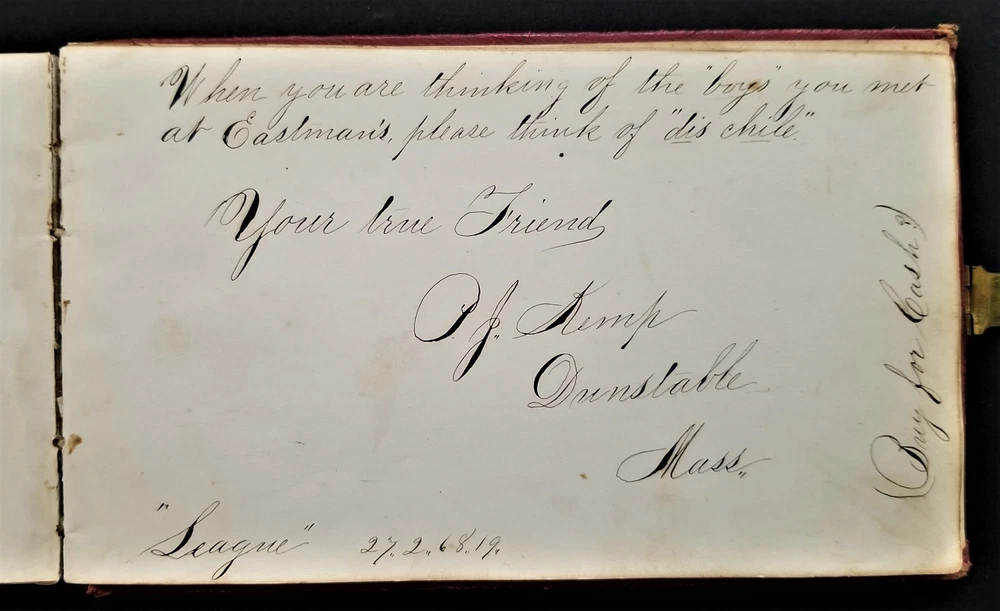 When you are thinking of the "boys" you met
at Eastman's, please think of "dis chile."
Your true Friend
P. J. Kemp
Dunstable
Mass.
"League" 27. 2. 68. 19.
(Buy for Cash?)